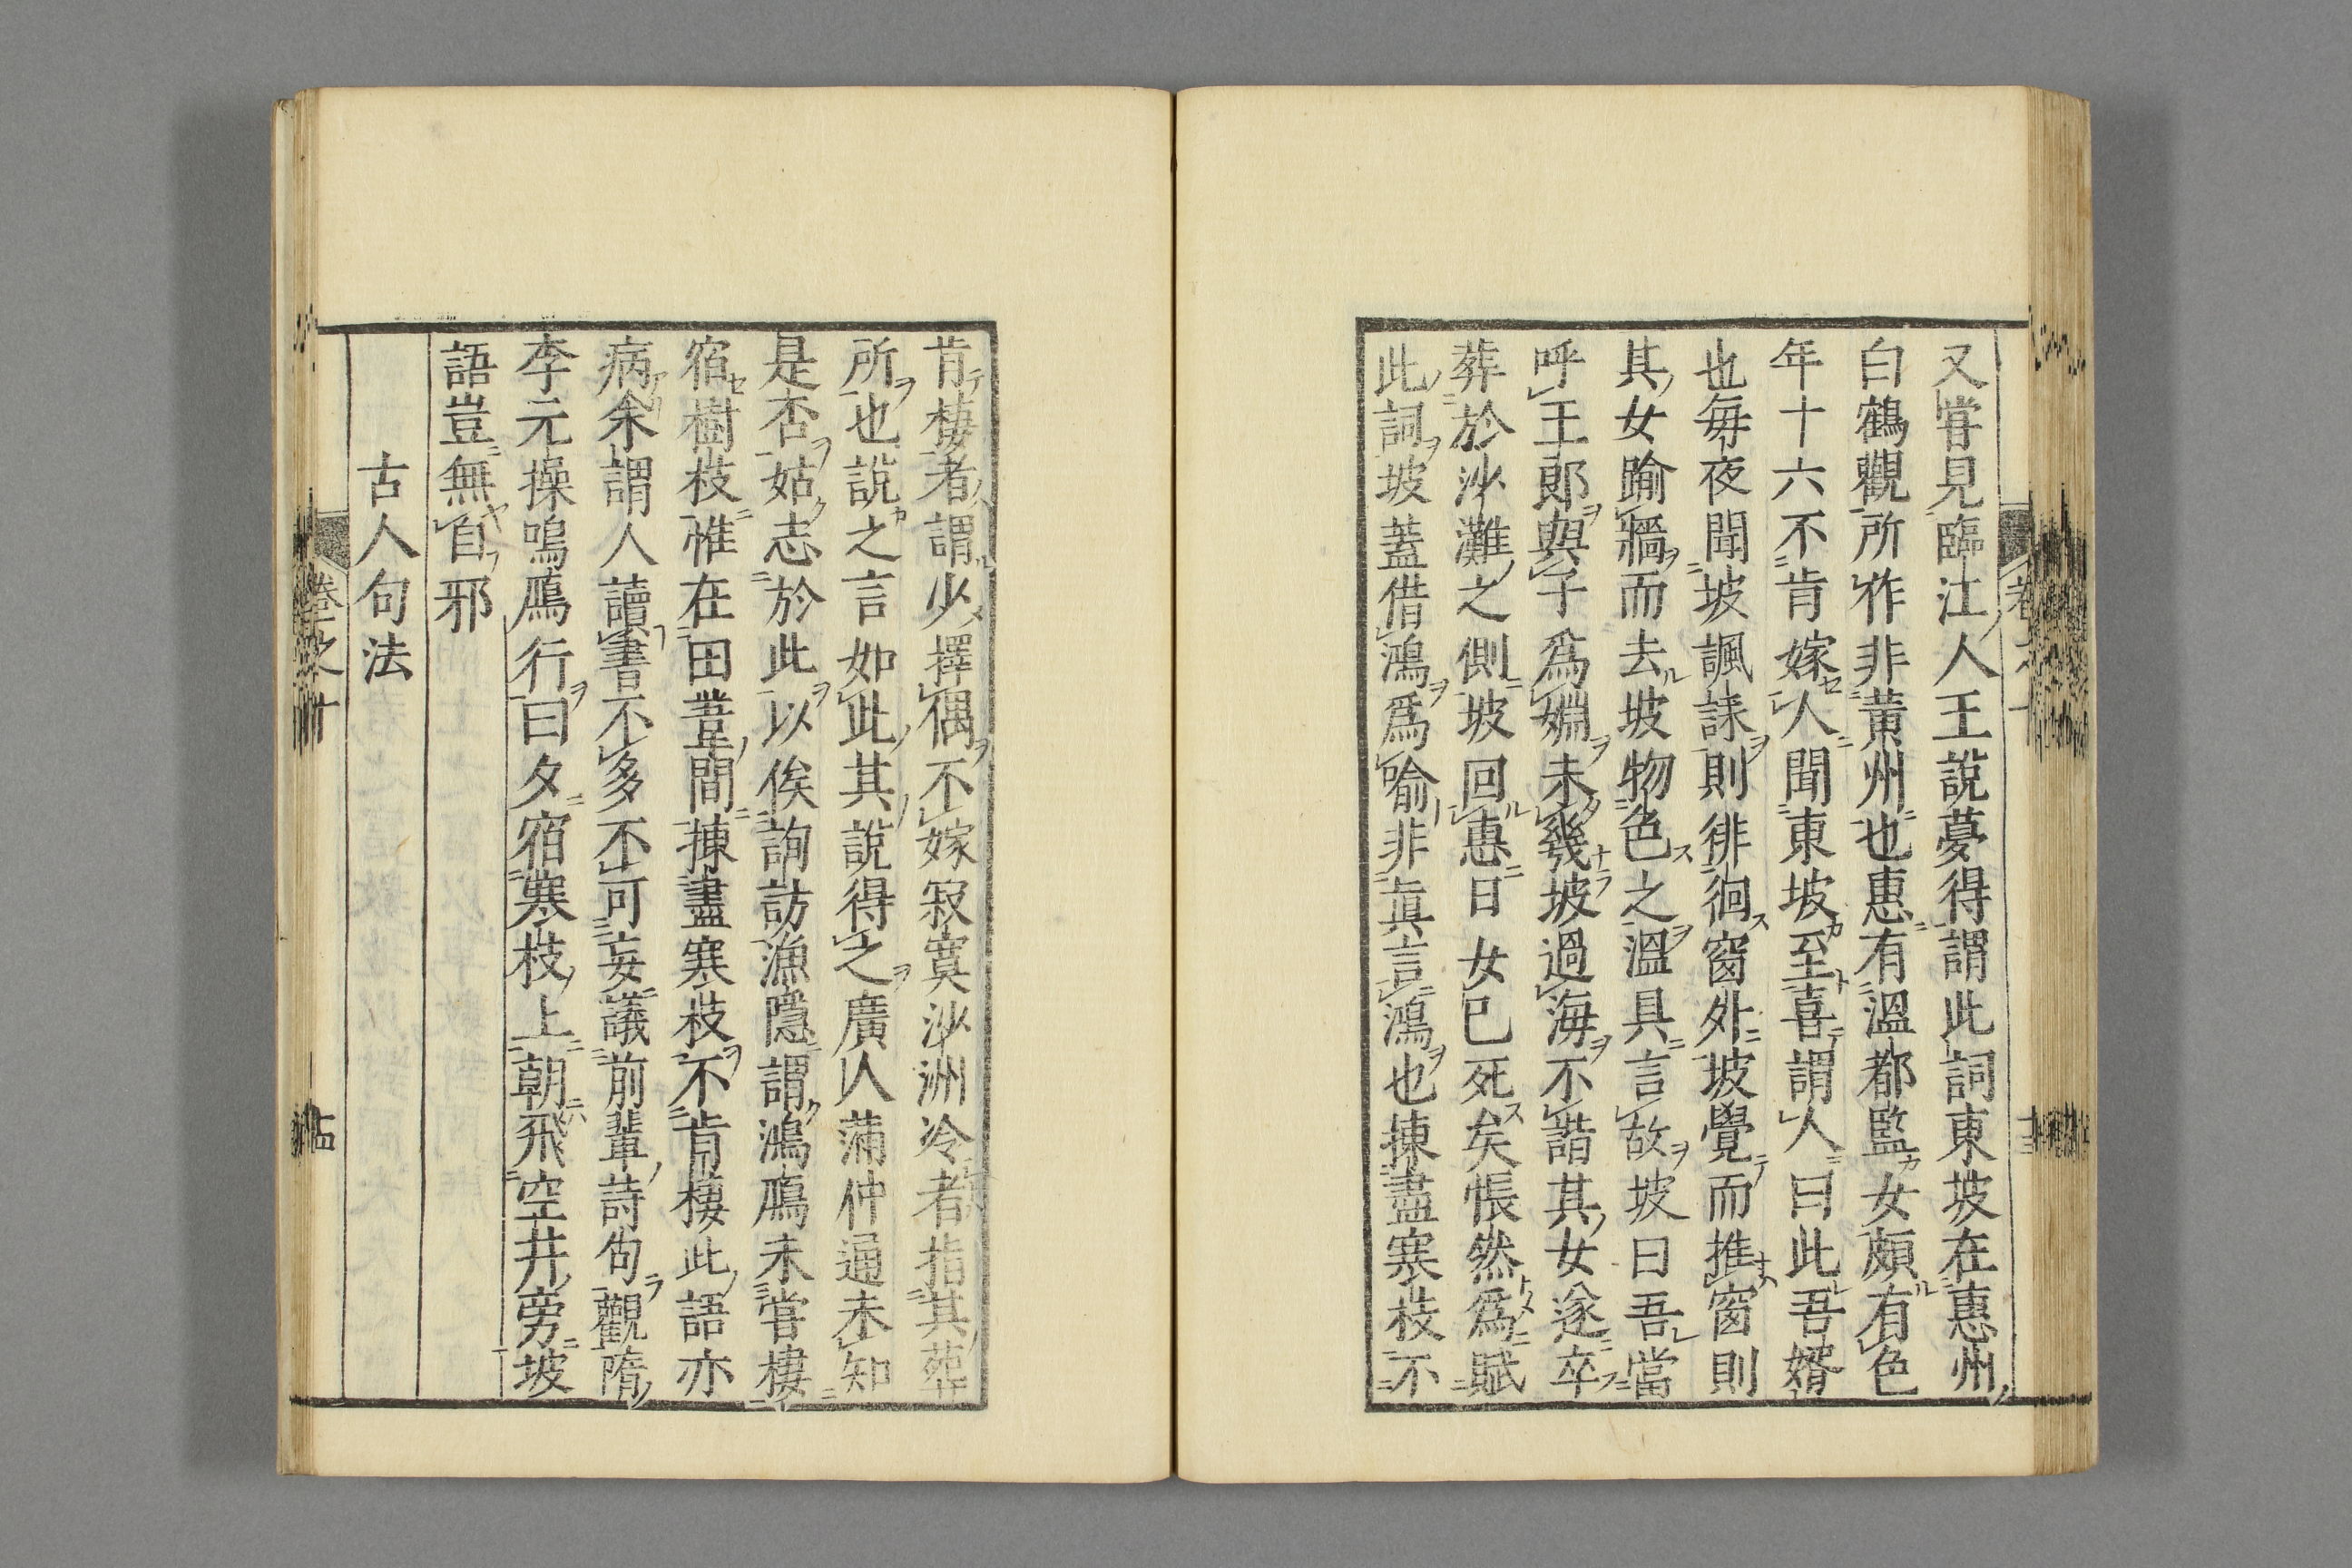 又嘗見臨江人王說夢得謂此詞東坡在惠州
白鶴觀所作非黃州也惠有溫都監女頗有色
年十六不肯嫁人聞東坡至喜謂人曰此吾婿
也每夜聞坡諷詠則徘徊窗外坡覺而推窗則
其女踰牆而去坡物色之溫具言故坡曰吾當
呼王郎與子為婣未幾坡過海不諧其女遂卒
葬於沙灘之側坡回惠日女已死矣悵然為賦
此詞坡蓋借鴻為喻非真言鴻也揀盡寒枝不
肯棲者謂少擇偶不嫁寂寞沙洲冷者指其葬
所也說之言如此其說得之廣人蒲仲通未知
是否姑志於此以俟詢訪漁隱謂鴻鴈未嘗棲
宿樹枝惟在田葦間揀盡寒枝不肯棲此語亦
病余謂人讀書不多不可妄議前輩詩句觀隋
李元操鳴鴈行曰夕宿寒枝上朝飛空井旁坡
語豈無自邪
古人句法
卷之十
十四